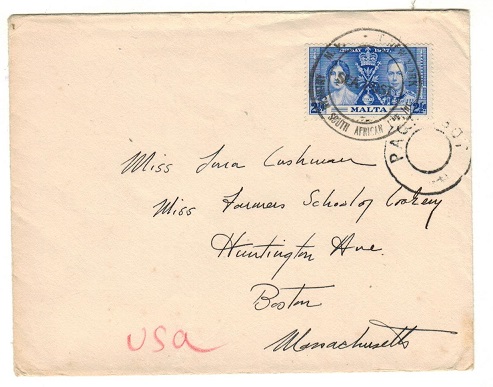 MAY 1937
2½ MALTA 2½
SOUTH AFRICAN
PAQUEBOT
Miss Cushman
Miss Farmers School of Cookery
Huntington Ave.
Boston
Massachusetts
USA